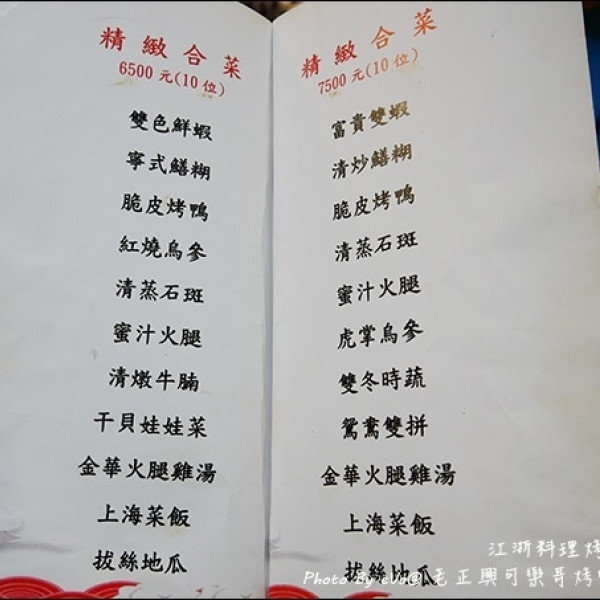 精緻合菜
6500元(10位)
雙色鮮蝦
寧式鱔糊
脆皮烤鴨
紅燒烏參
清蒸石斑
蜜汁火腿
清燉牛腩
干貝娃娃菜
金華火腿雞湯
上海菜飯
拔絲地瓜
精緻合菜
7500元(10位)
富貴雙蝦
清炒鱔糊
脆皮烤鴨
清蒸石斑
蜜汁火腿
虎掌烏參
雙冬時蔬
鴛鴦雙拼
金華火腿雞湯
上海菜飯
拔絲地瓜
江浙料理烤
Photo By 老正興可樂哥烤鴨